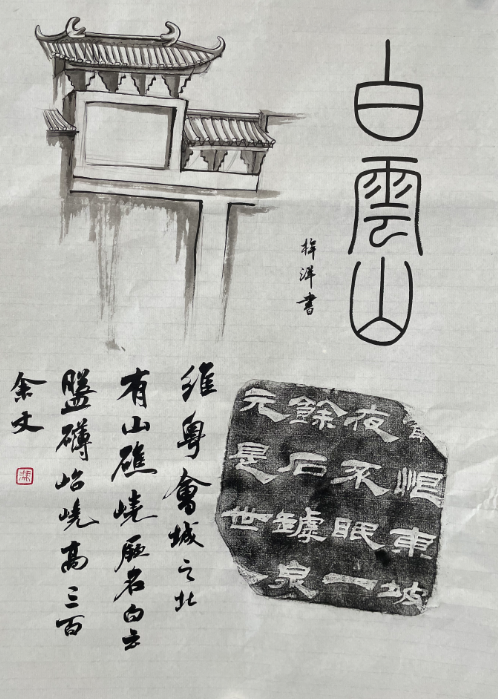 白雲山
洋書
東坡
夜不眠一
餘石罅泉
元是世
維粵會城之北
有山礁嶢厥名白云
盤礴岧嶢高三百
余文